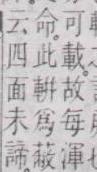 可載故每渾
命此輧爲蔽
云四面未諦